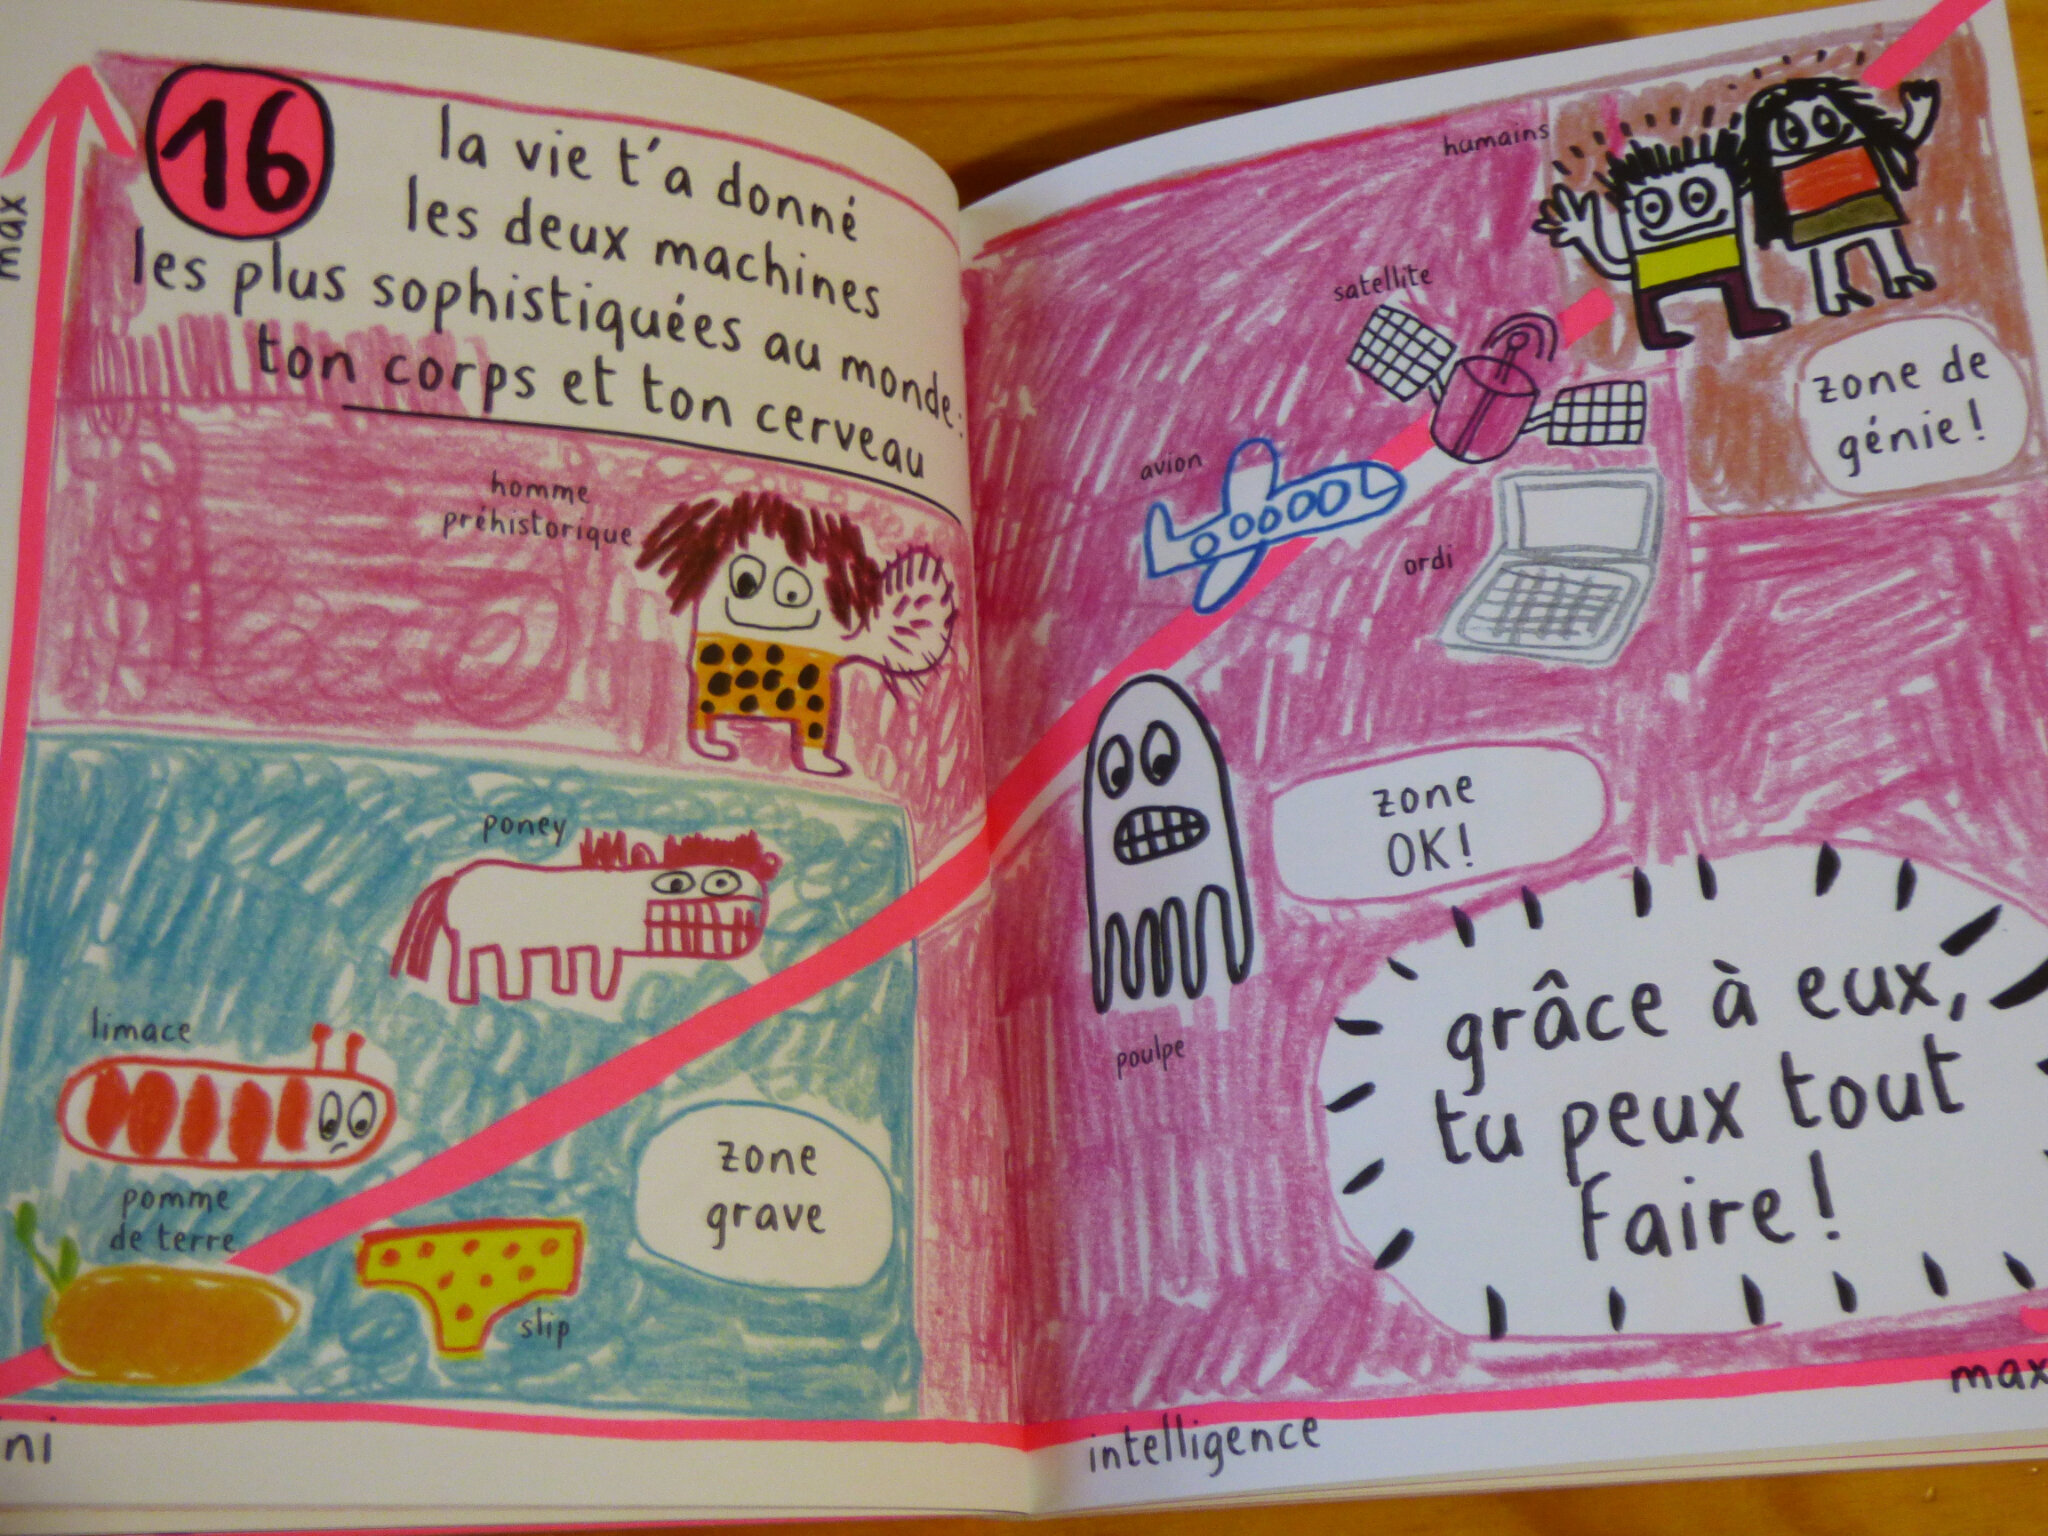 16
la vie t'a donné
les deux machines
les plus sophistiquées au monde:
ton corps et ton cerveau
max
homme
préhistorique
poney
limace
pomme
de terre
slip
zone
grave
humains
satellite
avion
ordi
zone de
génie!
zone
OK!
poulpe
grâce à eux,
tu peux tout
faire!
max
intelligence